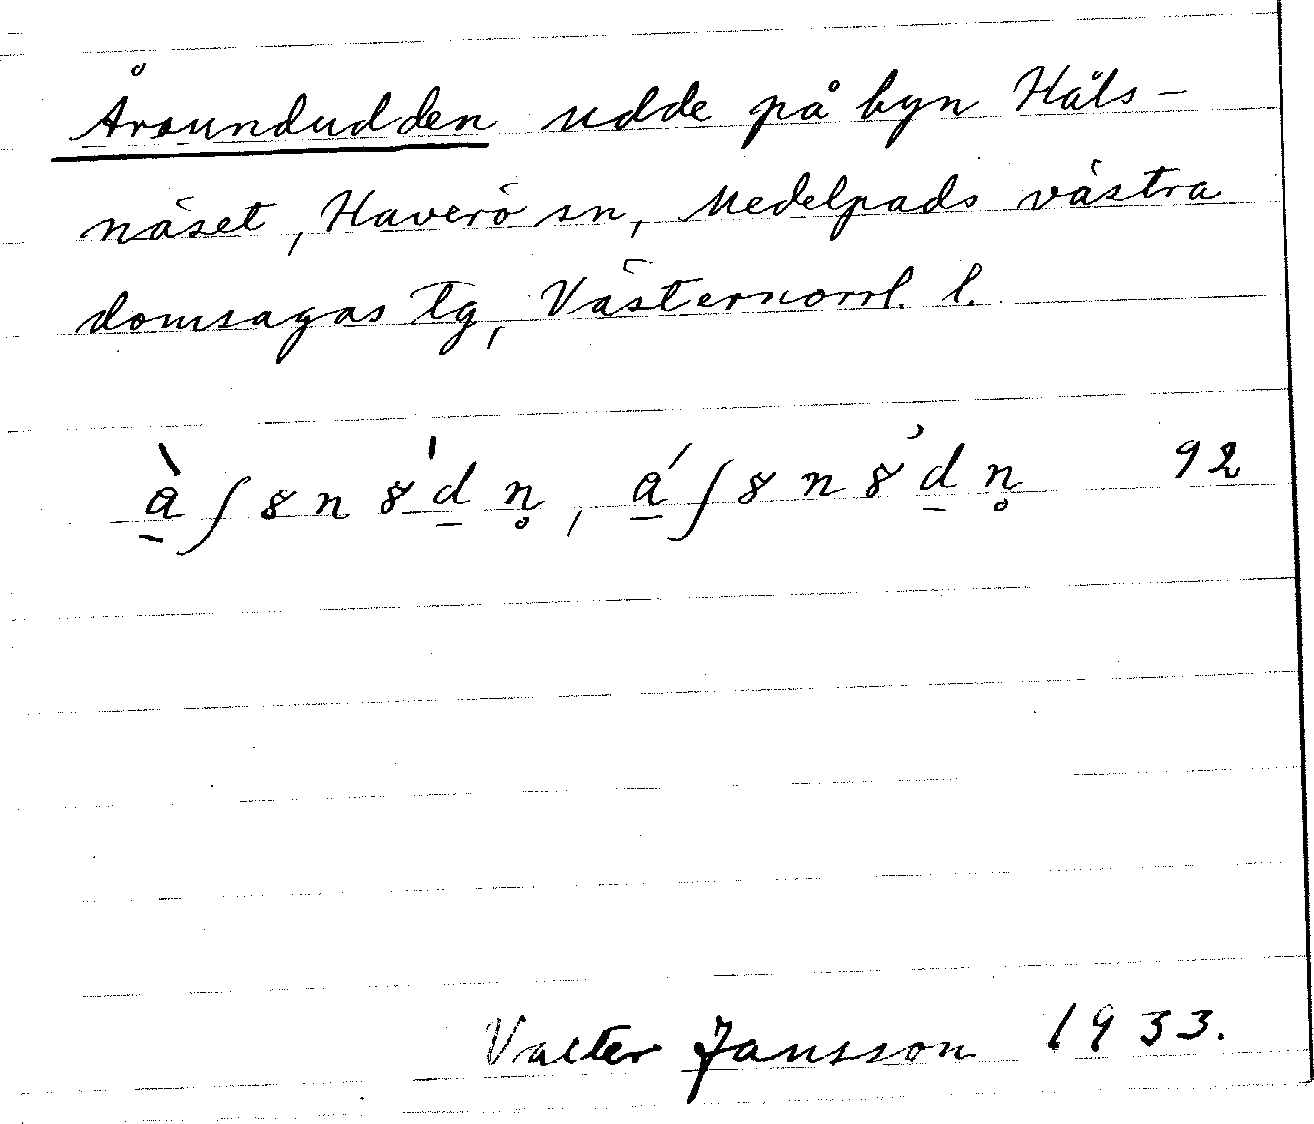 Årsundudden udde på byn Håls-
näset, Haverö sn, Medelpads västra
domsagas tg, Västernorrl. l.
à̱ ʃ 8 n 8 ˈḏ n̥, á̱ ʃ 8 n 8 ʼḏ n̥ 92
Valter Jansson 1933.